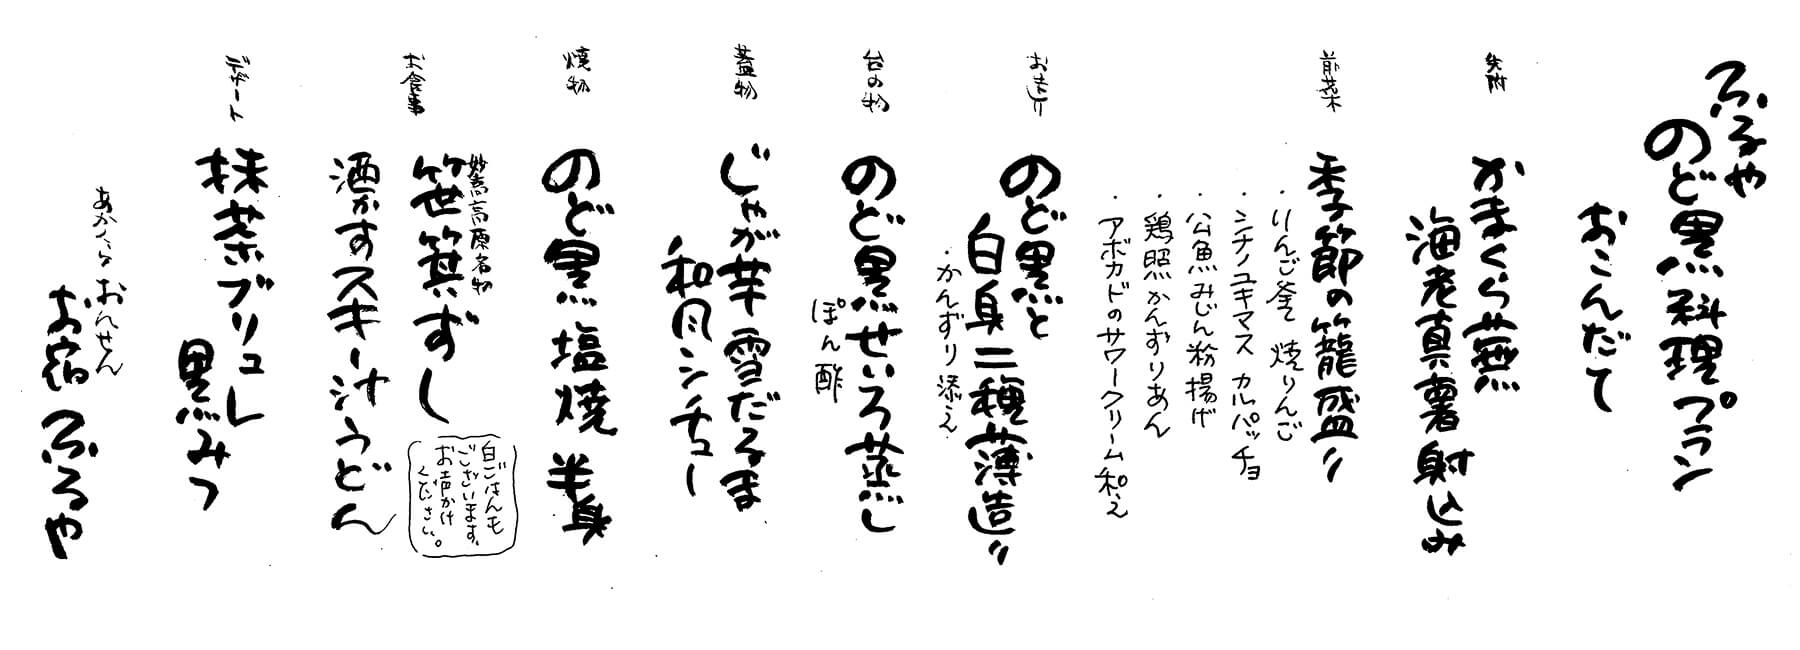 ふるや
のど黒料理プラン
おこんだて
先附
かまくら蕪
海老真薯射込み
前菜
季節の籠盛り
・りんご釜で 焼りんご
・シナノユキマス カルパッチョ
・公魚みじん粉揚げ
・鶏照かんずりあん
・アボカドのサワークリーム和え
お造り
のど黒と
白身二種薄造り
・かんずり添え
台の物
のど黒せいろ蒸し
ぽん酢
蓋物
じゃが芋雪だるま
和風シチュー
焼物
のど黒 塩焼 半身
お食事
妙高高原名物
笹ずし
酒かすスキー汁うどん
白ごはんも
ございます。
お声かけ
ください。
デザート
抹茶ブリュレ
黒みつ
あかくらおんせん
お宿 ふるや